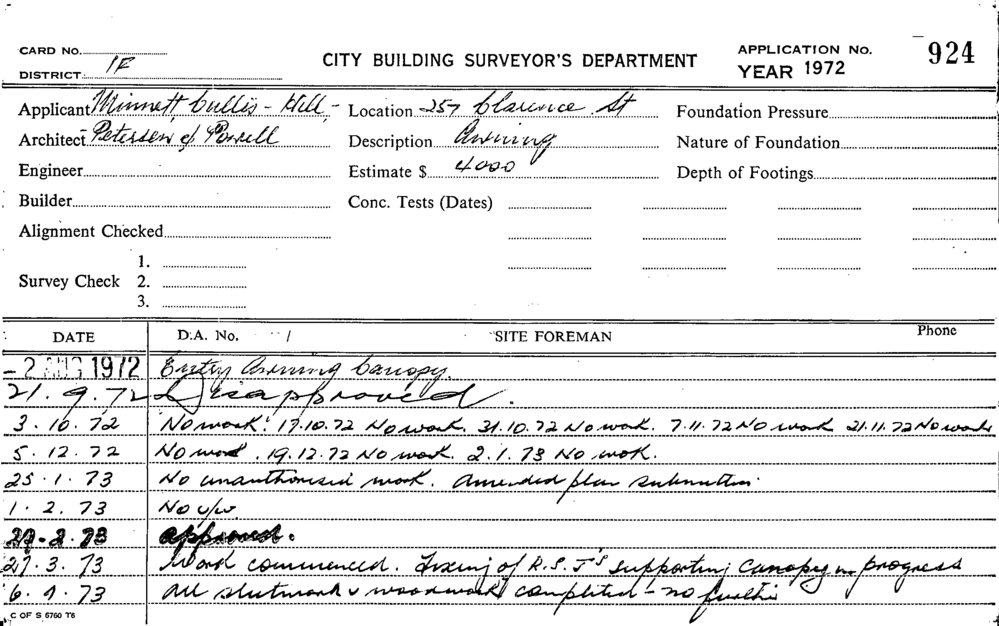 CARD NO.
DISTRICT 1F
CITY BUILDING SURVEYOR'S DEPARTMENT
APPLICATION No. 924
YEAR 1972
Applicant Minnett, Cullis-Hill,- Location 257 Clarence St Foundation Pressure
Architect Petersen & Powell Description Awning Nature of Foundation
Engineer Estimate $ 4000 Depth of Footings
Builder Conc. Tests (Dates)
Alignment Checked
1.
Survey Check 2.
3.
DATE D.A. No. / SITE FOREMAN Phone
-2 AUG 1972 Entry Awning Canopy.
21.9.72 Disapproved.
3.10.72 No work. 17.10.72 No work. 31.10.72 No work. 7.11.72 No work 21.11.72 No work
5.12.72 No work. 19.12.72 No work. 2.1.73 No work.
25.1.73 No unauthorised work. Amended plan
1.2.73 No u/w
.2.73 Approved.
27.3.73 Work commenced. Fixing of R.S.J's supporting Canopy in progress
6.9.73 All & woodwork completed - no further
C OF S 6760 T6